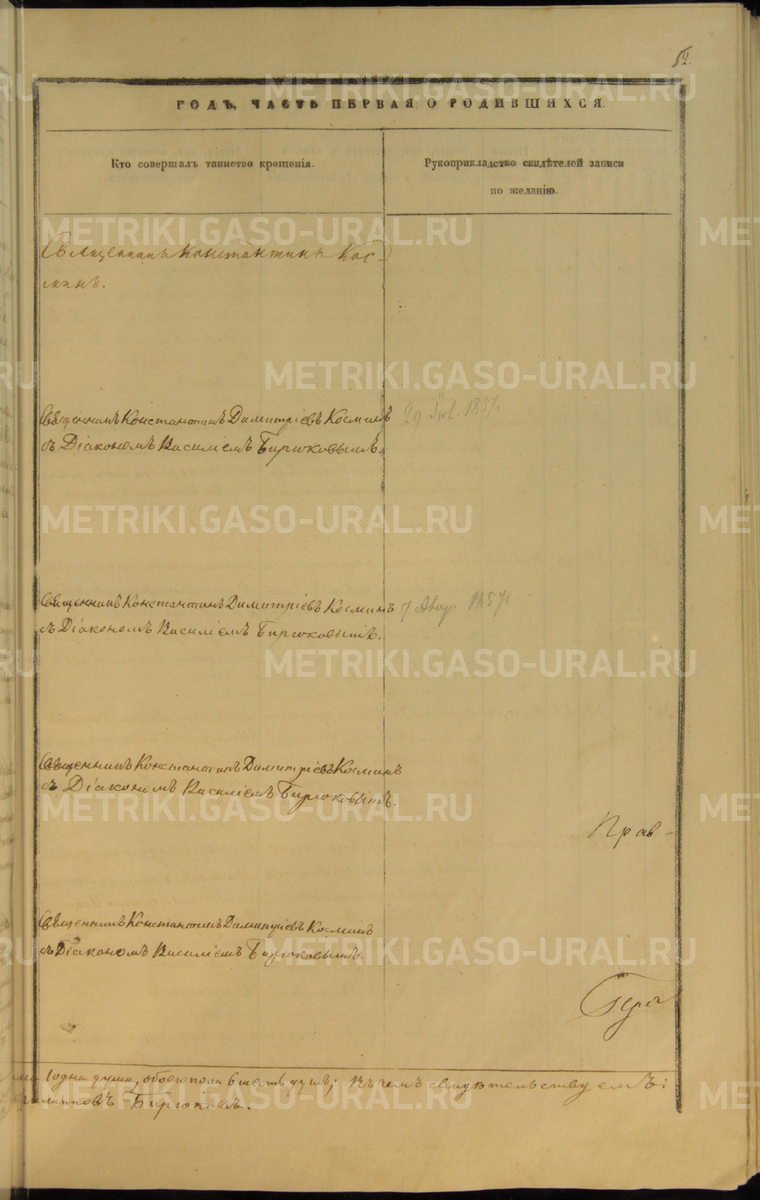 ГОДЪ, ЧАСТЬ ПЕРВАЯ О РОДИВШИХСЯ.
Кто совершалъ таинство крещенія.
Рукоприкладство свидѣтелей записи
по желанію.
Священникъ Константинъ Кос-
минъ.
Священникъ Константинъ Димитріевъ Косминъ
съ Діакономъ Василіемъ Бирюковымъ.
29 1857
Священникъ Константинъ Димитріевъ Косминъ
съ Діакономъ Василіемъ Бирюковымъ.
7 Авгу. 1857
Священникъ Константинъ Димитріевъ Косминъ
съ Діакономъ Василіемъ Бирюковымъ.
Прав-
Священникъ Константинъ Димитріевъ Косминъ
съ Діакономъ Василіемъ Бирюковымъ
1 одна душа, обоего пола 6 шесть душъ; Въ чемъ свидѣтельствуемъ:
Бирюковъ.
METRIKI.GASO-URAL.RU